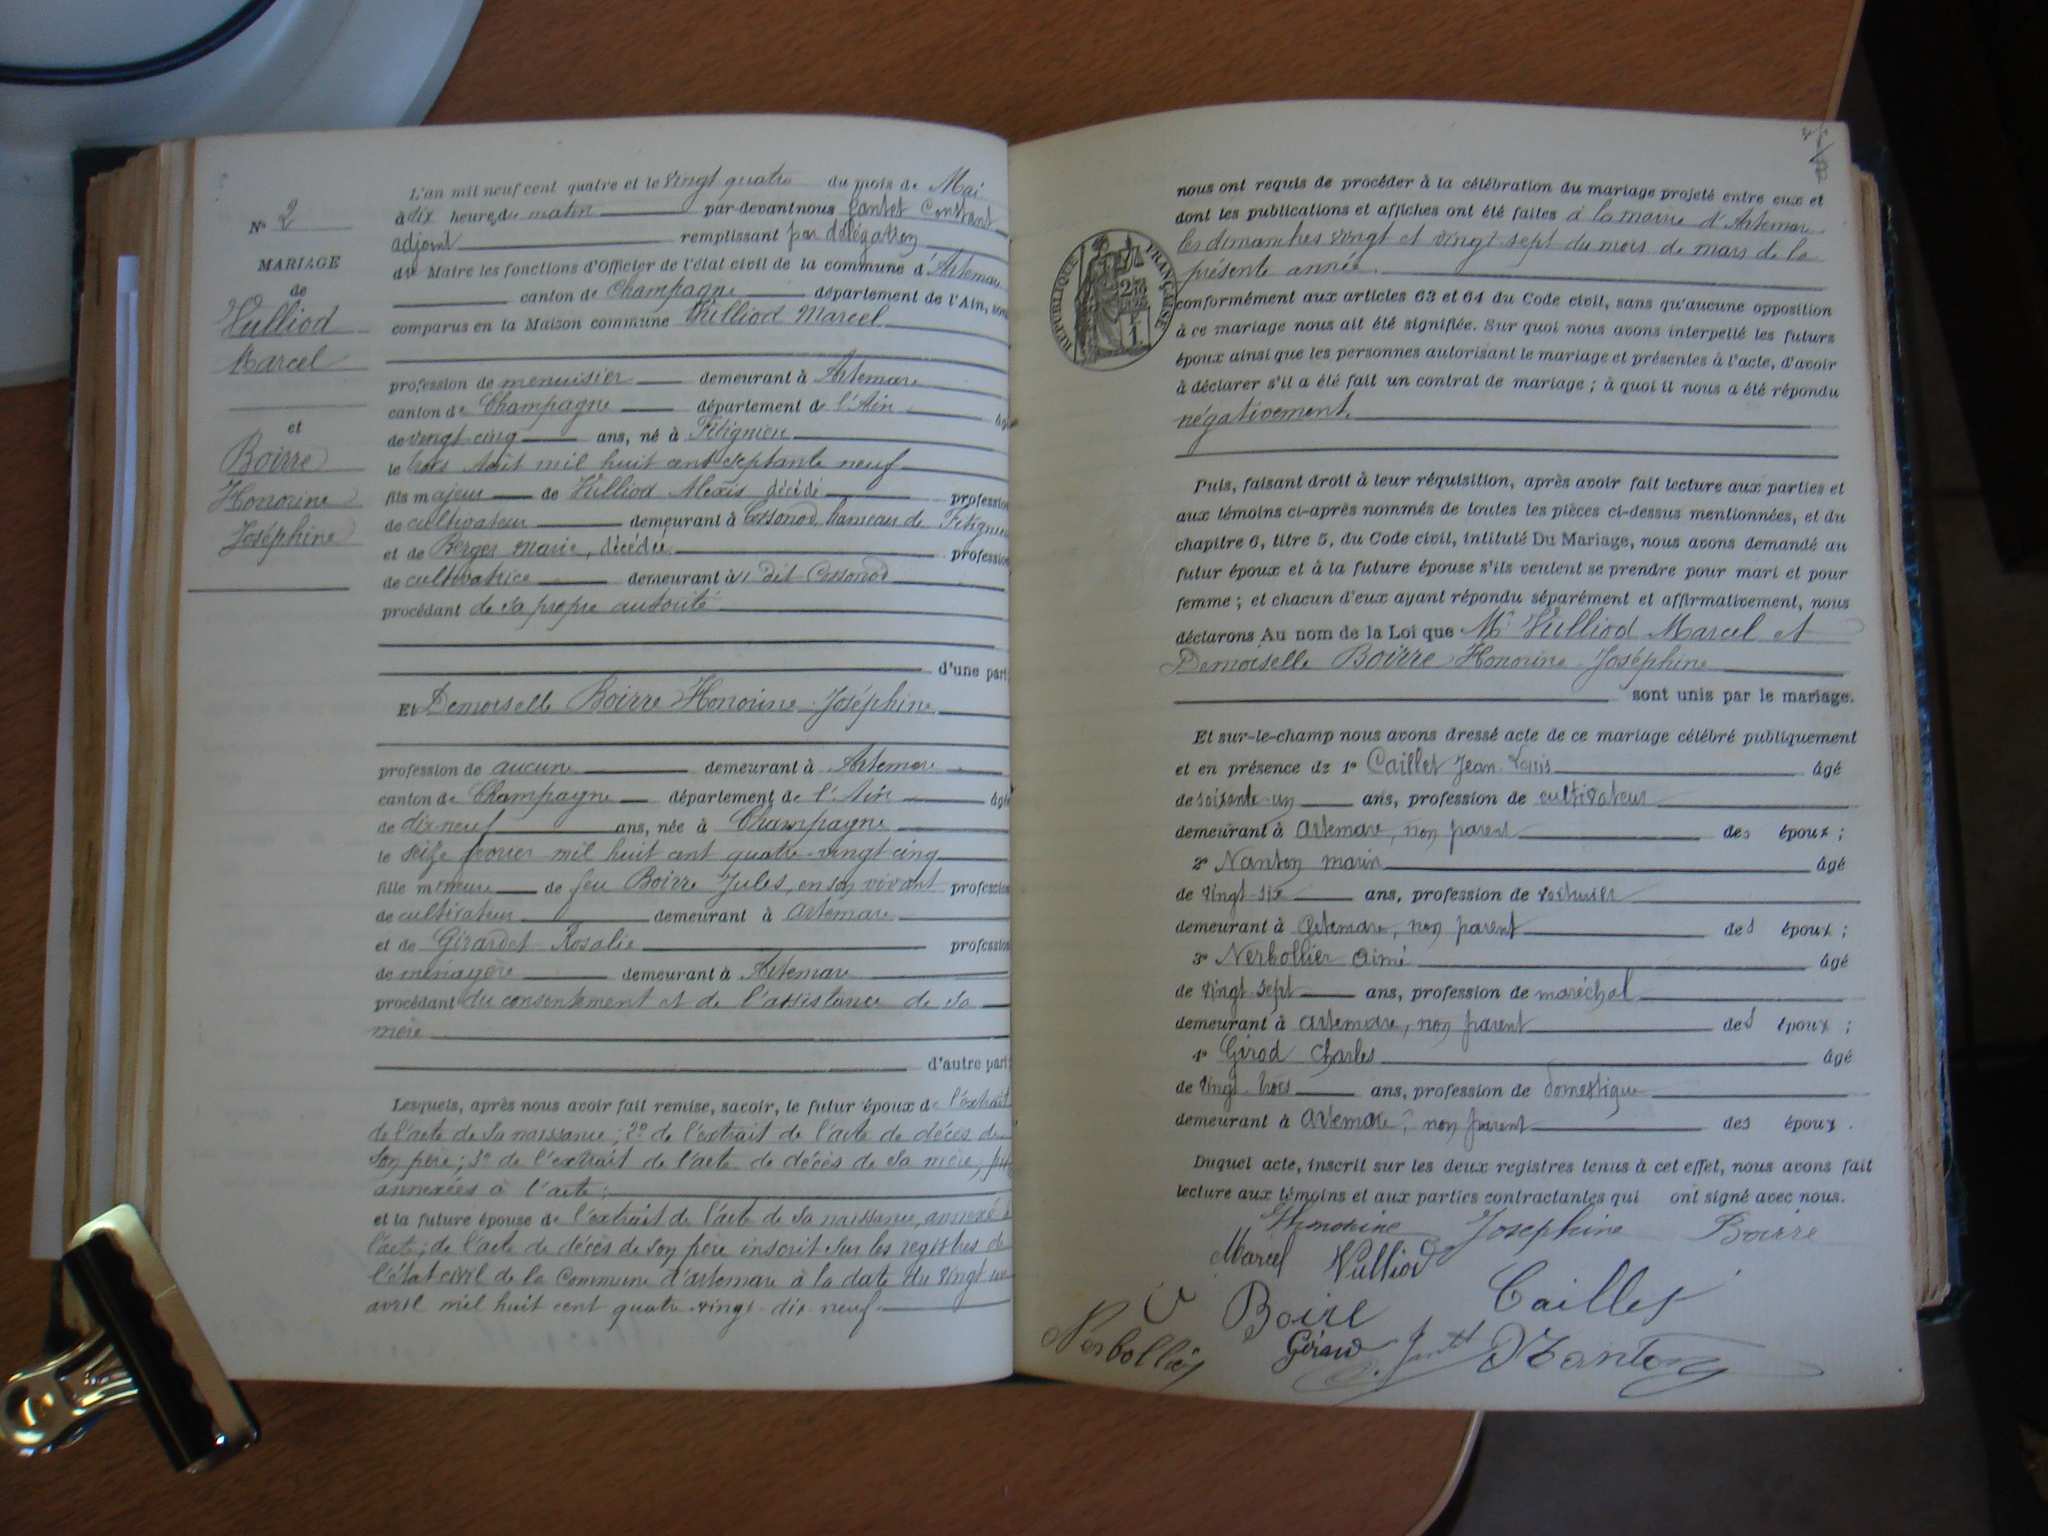 N° 2
MARIAGE
de
Vulliod
Marcel
et
Boirre
Honorine
Joséphine
L'an mil neuf cent quatre et le vingt quatre du mois de Mai
à dix heures du matin par-devant nous Constant
adjoint remplissant par délégation
du Maire les fonctions d'Officier de l'état civil de la commune d'Artemare
canton de Champagne département de l'Ain, sont
comparus en la Maison commune Vulliod Marcel
profession de menuisier demeurant à Artemare
canton de Champagne département de l'Ain âgé
de vingt-cinq ans, né à Fitignieu
le trois Août mil huit cent septante neuf
fils majeur de Vulliod Alexis décédé profession
de cultivateur demeurant à hameau de Fitignieu
et de Berger Marie, décédée profession
de cultivatrice demeurant à dit
procédant de sa propre autorité
d'une part
Et Demoiselle Boirre Honorine Joséphine
profession de aucune demeurant à Artemare
canton de Champagne département de l'Ain âgée
de dix-neuf ans, née à Champagne
le seize février mil huit cent quatre-vingt-cinq
fille mineure de feu Boirre Jules, en son vivant profession
de cultivateur demeurant à Artemare
et de Girardet Rosalie profession
de ménagère demeurant à Artemare
procédant du consentement et de l'assistance de sa
mère
d'autre part
Lesquels, après nous avoir fait remise, savoir, le futur époux de l'extrait
de l'acte de sa naissance; 2° de l'extrait de l'acte de décès de
son père; 3° de l'extrait de l'acte de décès de sa mère,
annexées à l'acte;
et la future épouse de l'extrait de l'acte de sa naissance, annexé à
l'acte; de l'acte de décès de son père inscrit sur les registres de
l'état civil de la commune d'Artemare à la date du vingt
avril mil huit cent quatre-vingt-dix-neuf
nous ont requis de procéder à la célébration du mariage projeté entre eux et
dont les publications et affiches ont été faites à la mairie d'Artemare
les dimanches vingt et vingt-sept du mois de mars de la
présente année.
RÉPUBLIQUE FRANÇAISE
conformément aux articles 63 et 64 du Code civil, sans qu'aucune opposition
à ce mariage nous ait été signifiée. Sur quoi nous avons interpellé les futurs
époux ainsi que les personnes autorisant le mariage et présentes à l'acte, d'avoir
à déclarer s'il a été fait un contrat de mariage; à quoi il nous a été répondu
négativement.
Puis, faisant droit à leur réquisition, après avoir fait lecture aux parties et
aux témoins ci-après nommés de toutes les pièces ci-dessus mentionnées, et du
chapitre 6, titre 5, du Code civil, intitulé Du Mariage, nous avons demandé au
futur époux et à la future épouse s'ils veulent se prendre pour mari et pour
femme; et chacun d'eux ayant répondu séparément et affirmativement, nous
déclarons Au nom de la Loi que Mr Vulliod Marcel et
Demoiselle Boirre Honorine Joséphine
sont unis par le mariage.
Et sur-le-champ nous avons dressé acte de ce mariage célébré publiquement
et en présence de 1° Caillet Jean Louis âgé
de soixante-un ans, profession de cultivateur
demeurant à Artemare, non parent des époux;
2° Nanton marin âgé
de vingt-six ans, profession de voiturier
demeurant à Artemare, non parent des époux;
3° Nerbollier Aimé âgé
de vingt-sept ans, profession de maréchal
demeurant à Artemare, non parent des époux;
4° Girod Charles âgé
de vingt-trois ans, profession de domestique
demeurant à Artemare, non parent des époux.
Duquel acte, inscrit sur les deux registres tenus à cet effet, nous avons fait
lecture aux témoins et aux parties contractantes qui ont signé avec nous.
Honorine Joséphine Boirre
Marcel Vulliod
Boire Caillet
Nerbollier Nanton